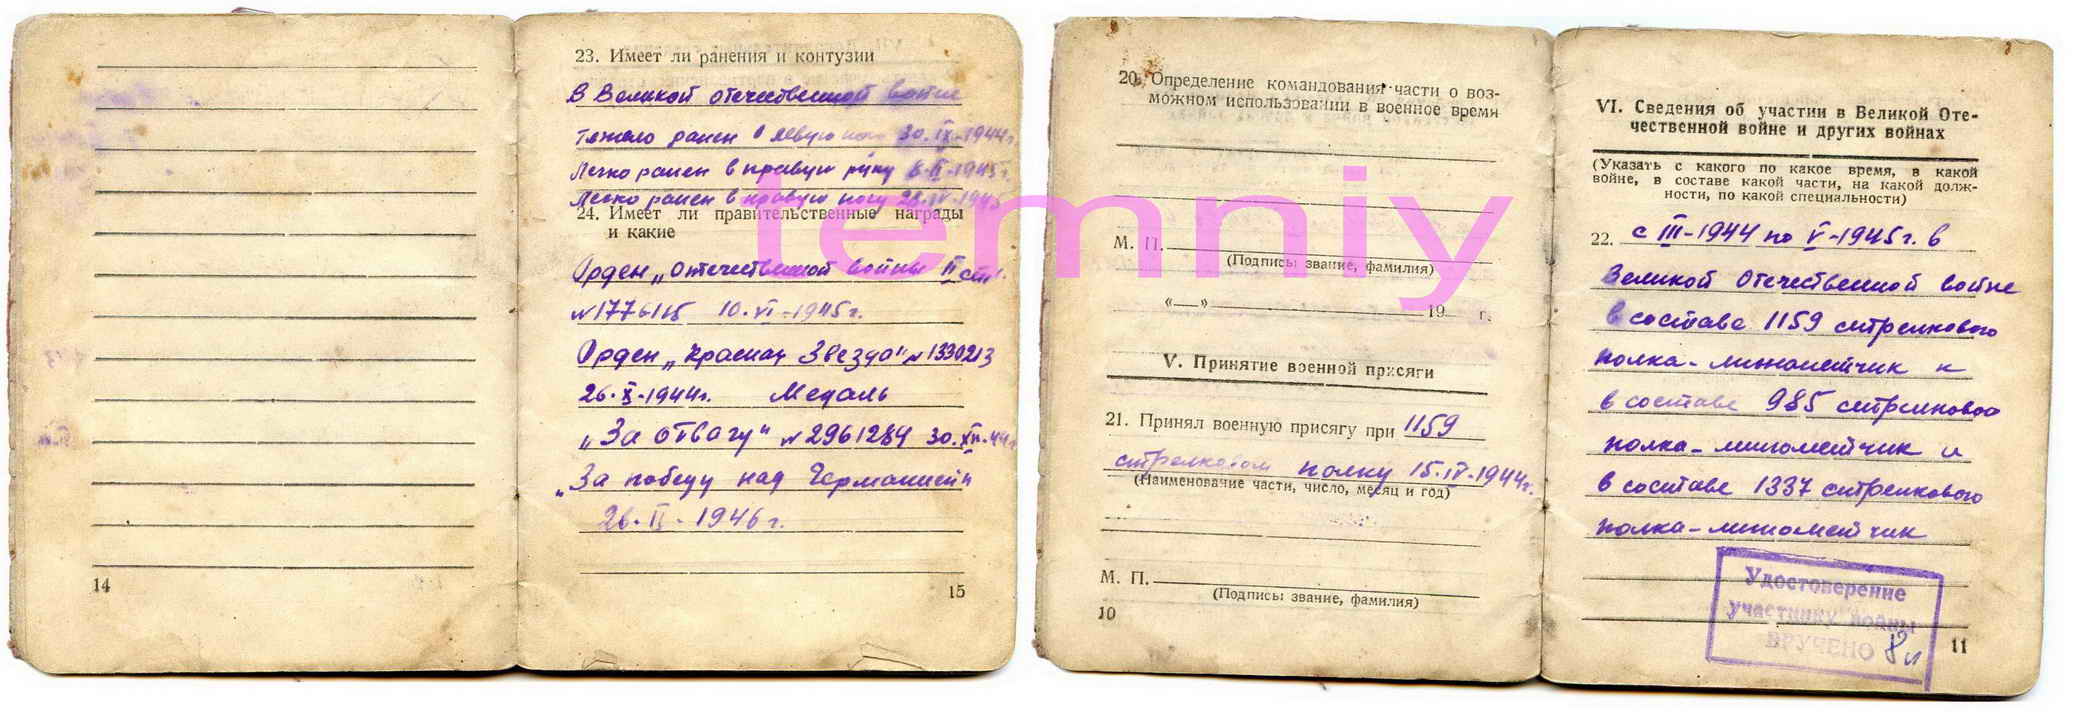 23. Имеет ли ранения и контузии
В Великой отечественной войне
тяжело ранен в левую ногу 30.IX-1944г
Легко ранен в правую руку 8.II-1945г.
Легко ранен в правую ногу 28.IV-1945
24. Имеет ли правительственные награды
и какие
Орден „Отечественной войны II ст".
№ 10.VI-1945г.
Орден „Красная Звезда" №1330213
26.X-1944г. Медаль
„За отвагу" №2961284 30.XII-44г
„За победу над Германией"
26.II-1946г.
14
15
20. Определение командования части о воз-
можном использовании в военное время
М. П.
(Подпись: звание, фамилия)
« » 19 г.
V. Принятие военной присяги
21. Принял военную присягу при 1159
стрелковом полку 15.IV-1944г.
(Наименование части, число, месяц и год)
М. П.
(Подпись: звание, фамилия)
10
VI. Сведения об участии в Великой Оте-
чественной войне и других войнах
(Указать с какого по какое время, в какой
войне, в составе какой части, на какой долж-
ности, по какой специальности)
22. с III-1944 по V-1945г. в
Великой Отечественной войне
в составе 1159 стрелкового
полка-минометчик и
в составе 985 стрелкового
полка-минометчик и
в составе 1337 стрелкового
полка-минометчик
Удостоверение
участнику войны
ВРУЧЕНО
11
temniy